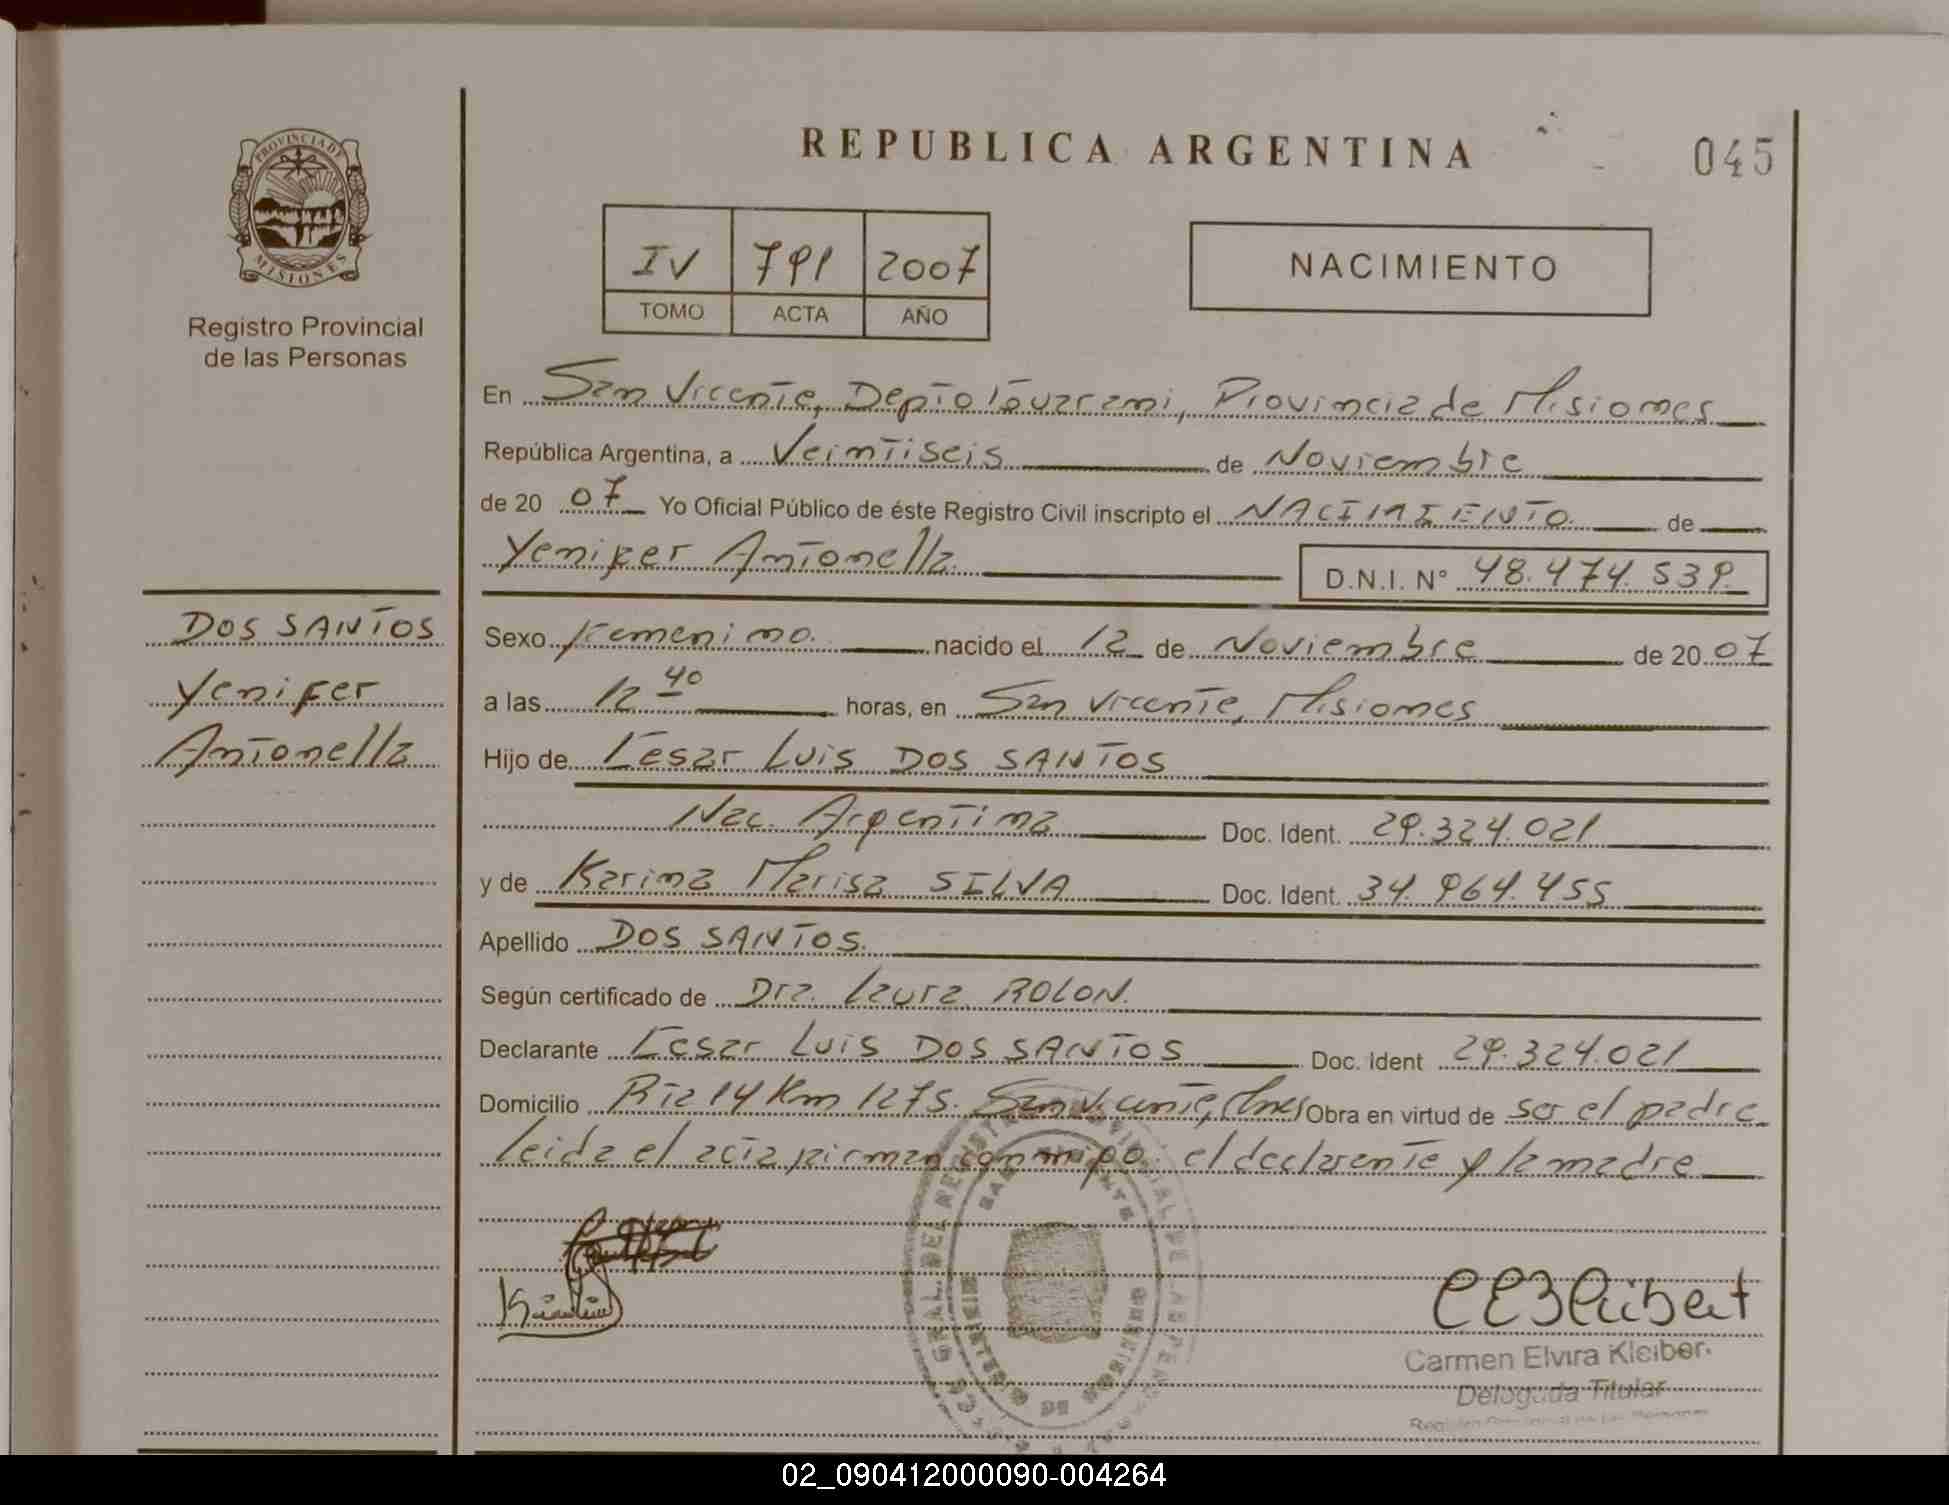 REPUBLICA ARGENTINA
045
PROVINCIA DE
MISIONES
Registro Provincial
de las Personas
IV 791 2007
TOMO ACTA AÑO
NACIMIENTO
En San Vicente, Depto Guarani, Provincia de Misiones
República Argentina, a Veintiseis de Noviembre
de 2007 Yo Oficial Público de éste Registro Civil inscripto el NACIMIENTO de
Yenifer Antonella. D.N.I. N° 48.474.539.
DOS SANTOS
Yenifer
Antonella
Sexo femenino. nacido el 12 de Noviembre de 2007
a las 12 40 horas, en San Vicente, Misiones
Hijo de Cesar Luis DOS SANTOS
Nac. Argentina Doc. Ident. 29.324.021
y de Karina Marisa SILVA Doc. Ident. 34.964.455
Apellido DOS SANTOS.
Según certificado de Dra. Laura ROLON.
Declarante Cesar Luis DOS SANTOS Doc. Ident 29.324.021
Domicilio Rta 14 Km 1275. San Vicente, Mnes Obra en virtud de ser el padre
leida el acta firman conmigo el declarante y la madre
Carmen Elvira Kleiber
Delegada Titular
02_090412000090-004264